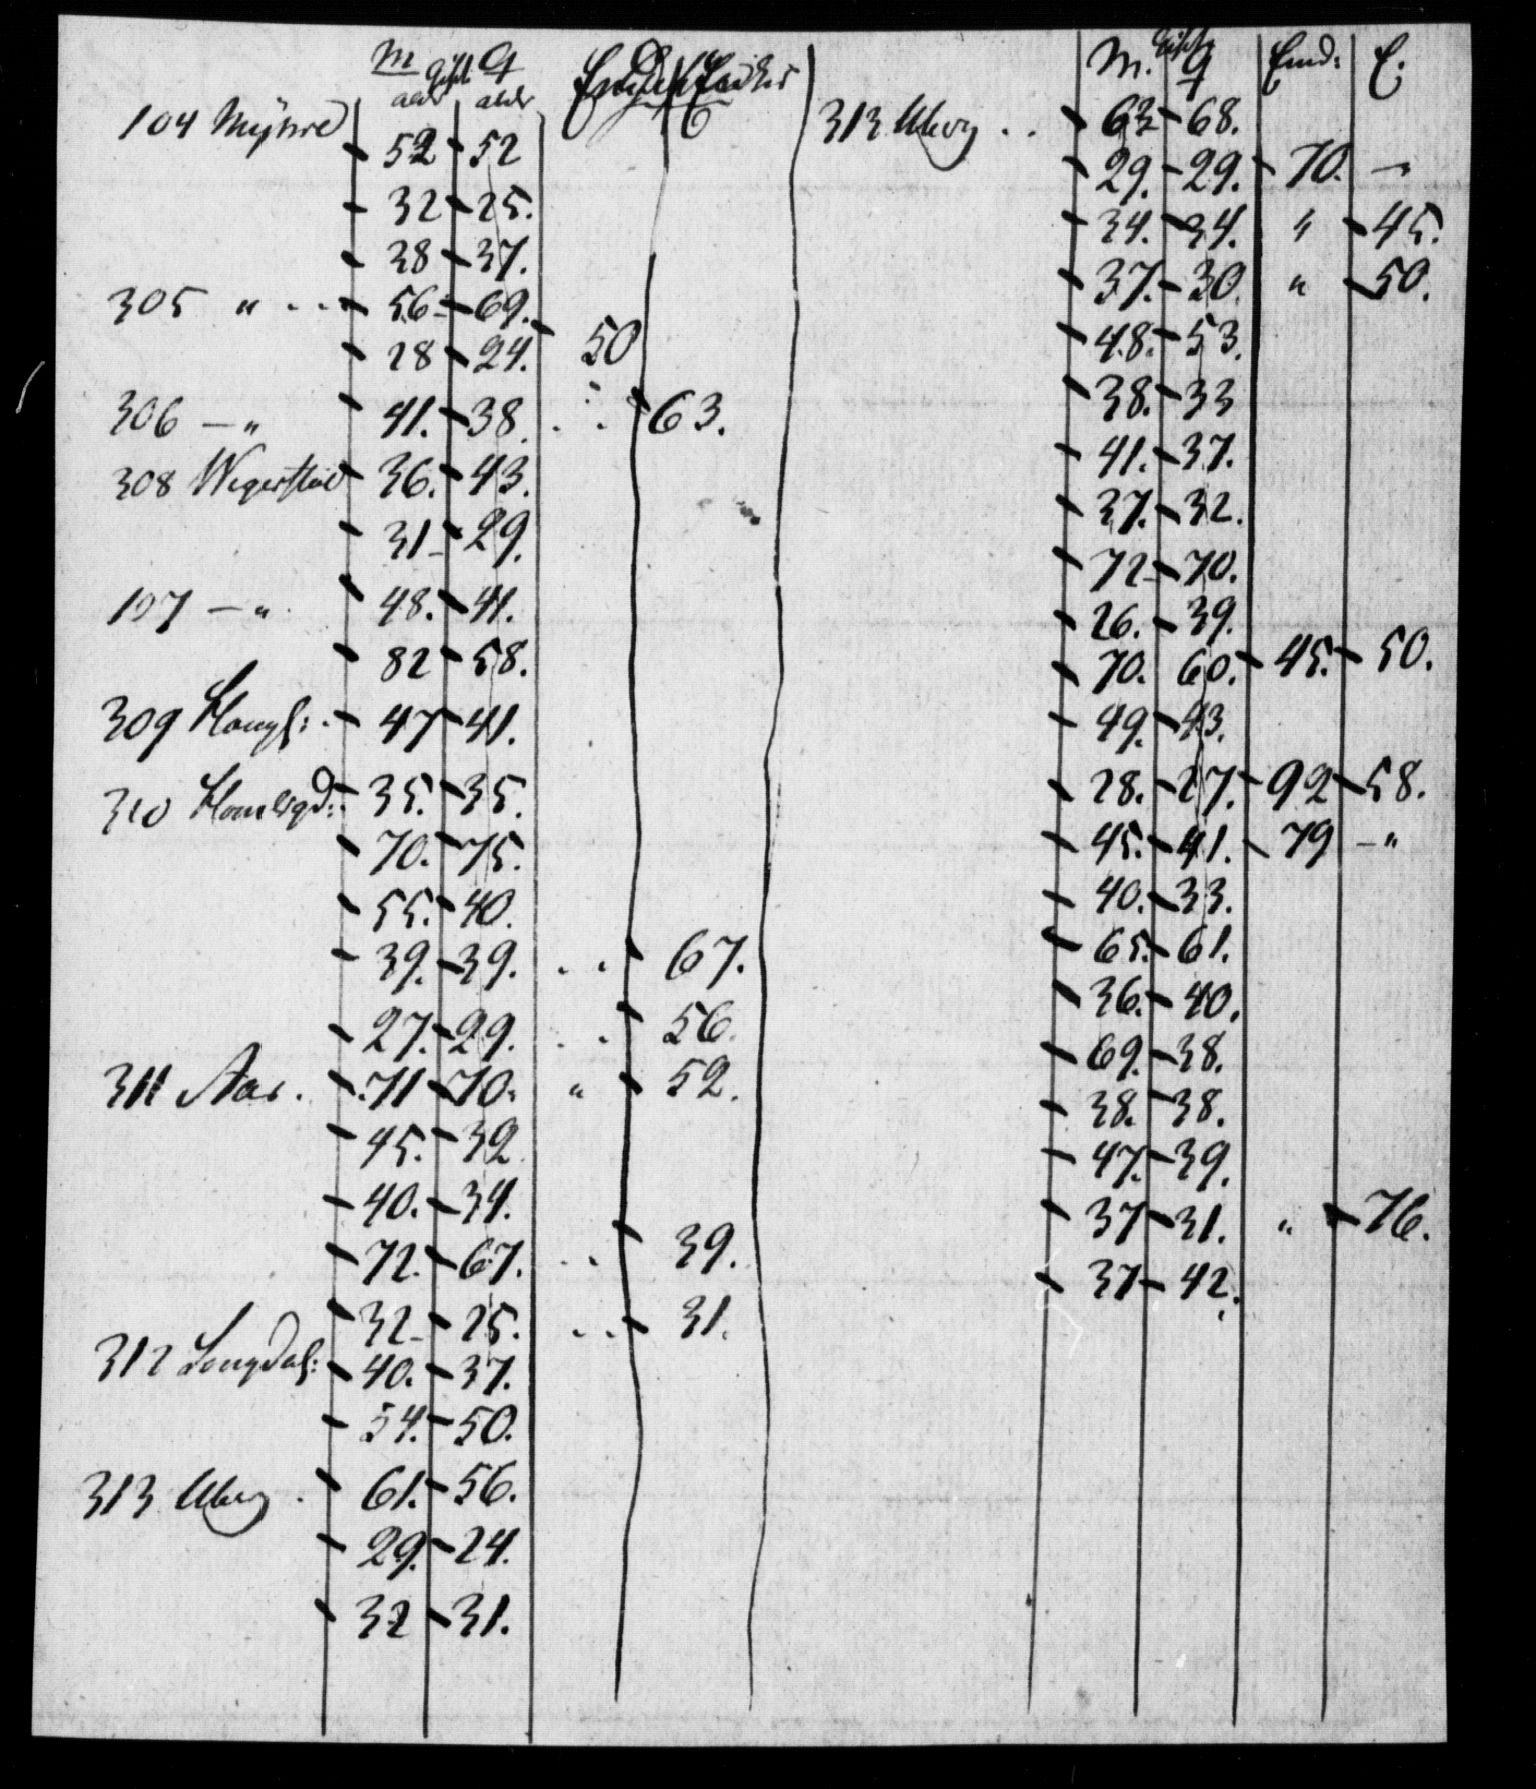 M gift Q
alder alder
104 Myhre 52 - 52
32 - 25.
38 - 37.
305 " 56 - 69.
28 - 24. 50
306 - " 41. - 38. 63.
308 Wegerstad 36. - 43.
31 - 29.
107 - " 48. - 41.
82 - 58.
309 47 - 41.
310 35. - 35.
70. - 75.
55. - 40.
39. - 39. 67.
27. - 29. 56.
311 Aas. 71 - 70. " 52.
45. - 39
40. - 34.
72. - 67. 39.
32 - 25. 31.
312 Langdal: 40. - 37.
54. - 50.
313 Uberg 61. - 56.
29. - 24.
32 - 31.
M. gift Q Emd: E.
313 Uberg .. 63 - 68.
29. - 29. - 70. - "
34. - 34. " - 45.
37. - 30. " - 50.
48. - 53.
38. - 33
41. - 37.
37. - 32.
72 - 70.
26. - 39.
70. 60. - 45. - 50.
49. - 43.
28. - 27. - 92 - 58.
45. - 41. - 79 - "
40. - 33.
65. - 61.
36. - 40.
69. - 38.
38. - 38.
47. - 39.
37 - 31. " - 76.
37 - 42.